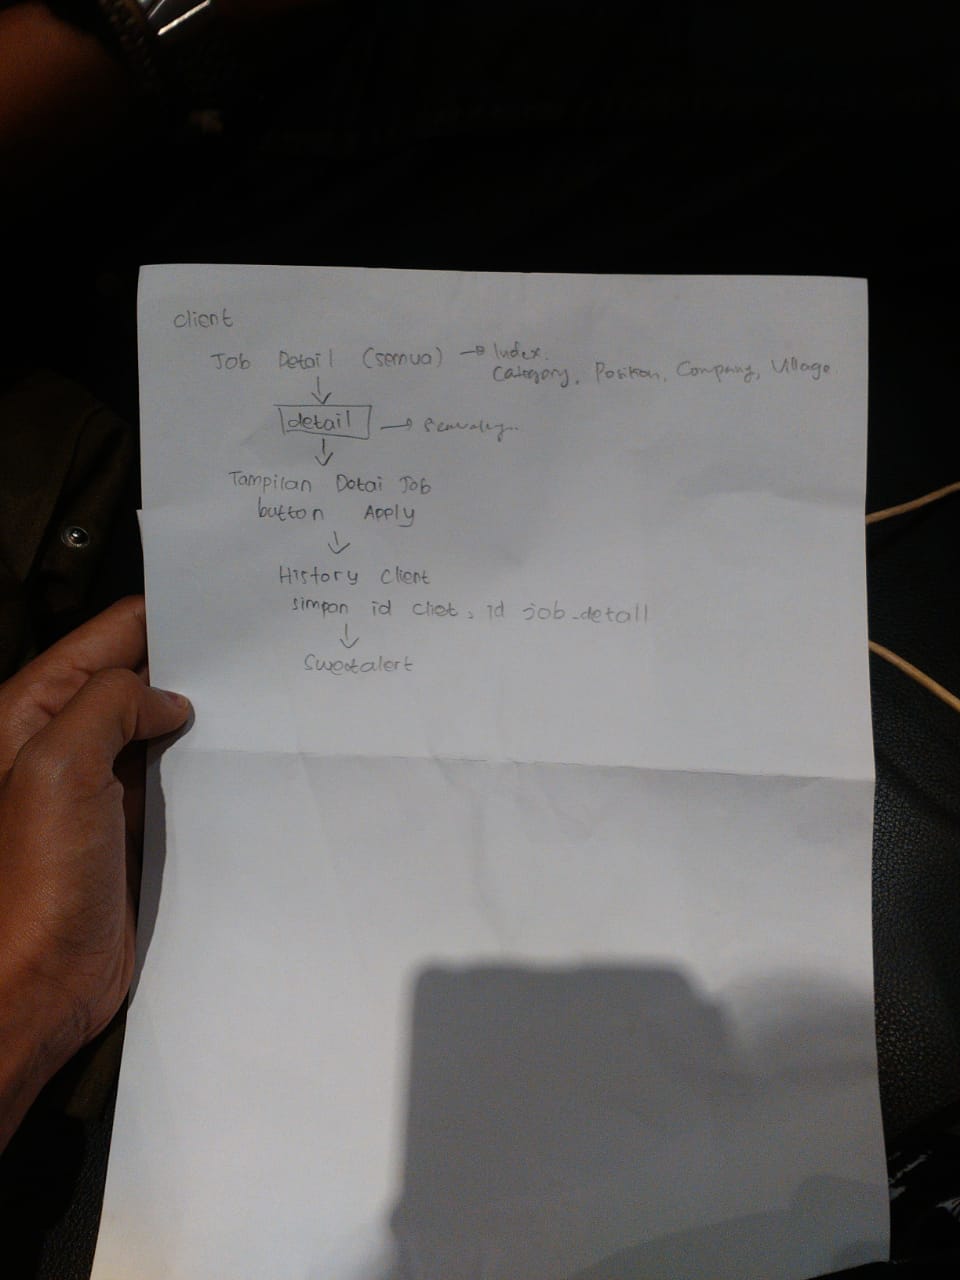 client
Job Detail (semua) → Index.
Category, Position, Company, Village.
detail →
Tampilan Detai Job
button Apply
History Client
simpan id cliet, id job_detail
Sweetalert